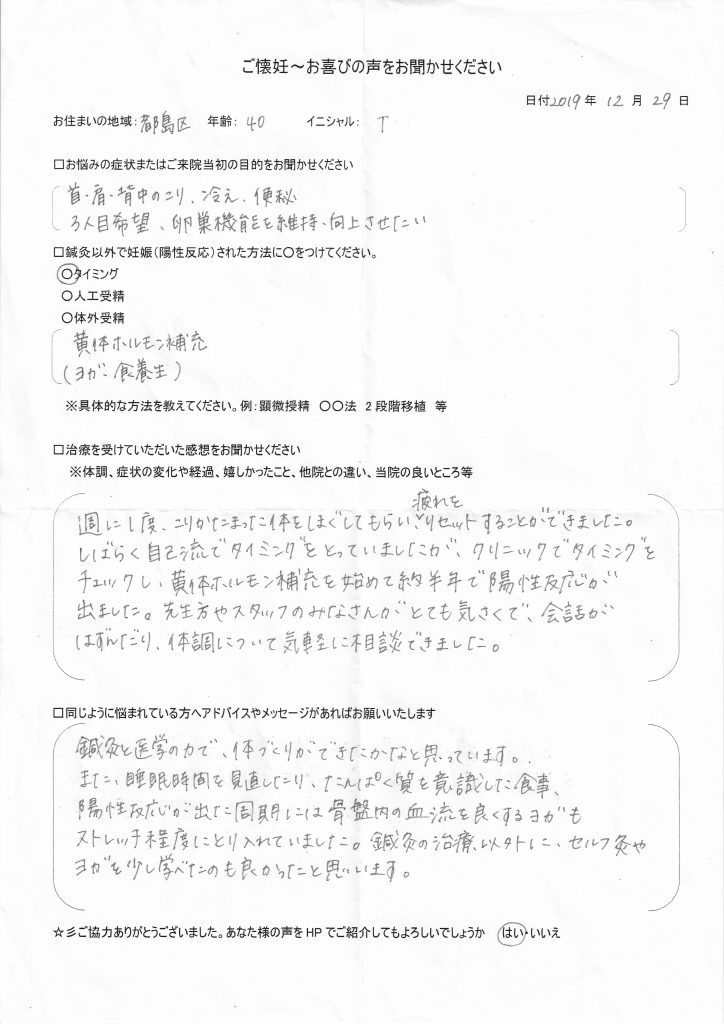 ご懐妊～お喜びの声をお聞かせください
日付2019年 12月 29日
お住まいの地域:都島区 年齢:40 イニシャル: T
□お悩みの症状またはご来院当初の目的をお聞かせください
首・肩・背中のこり、冷え、便秘
3人目希望、卵巣機能を維持・向上させたい
□鍼灸以外で妊娠(陽性反応)された方法に〇をつけてください。
〇タイミング
〇人工受精
〇体外受精
黄体ホルモン補充
(ヨガ、食養生)
※具体的な方法を教えてください。例:顕微授精 〇〇法 2段階移植 等
□治療を受けていただいた感想をお聞かせください
※体調、症状の変化や経過、嬉しかったこと、他院との違い、当院の良いところ等
疲れを
週に1度、こりかたまった体をほぐしてもらいリセットすることができました。
しばらく自己流でタイミングをとっていましたが、クリニックでタイミングを
チェックし、黄体ホルモン補充を始めて約半年で陽性反応が
出ました。先生方やスタッフのみなさんがとても気さくで、会話が
はずんだり、体調について気軽に相談できました。
□同じように悩まれている方へアドバイスやメッセージがあればお願いいたします
鍼灸と医学の力で、体づくりができたかなと思っています。
また、睡眠時間を見直したり、たんぱく質を意識した食事、
陽性反応が出た周期には骨盤内の血流を良くするヨガも
ストレッチ程度にとり入れていました。鍼灸の治療以外に、セルフ灸や
ヨガを少し学べたのも良かったと思います。
☆彡ご協力ありがとうございました。あなた様の声をHPでご紹介してもよろしいでしょうか はい・いいえ